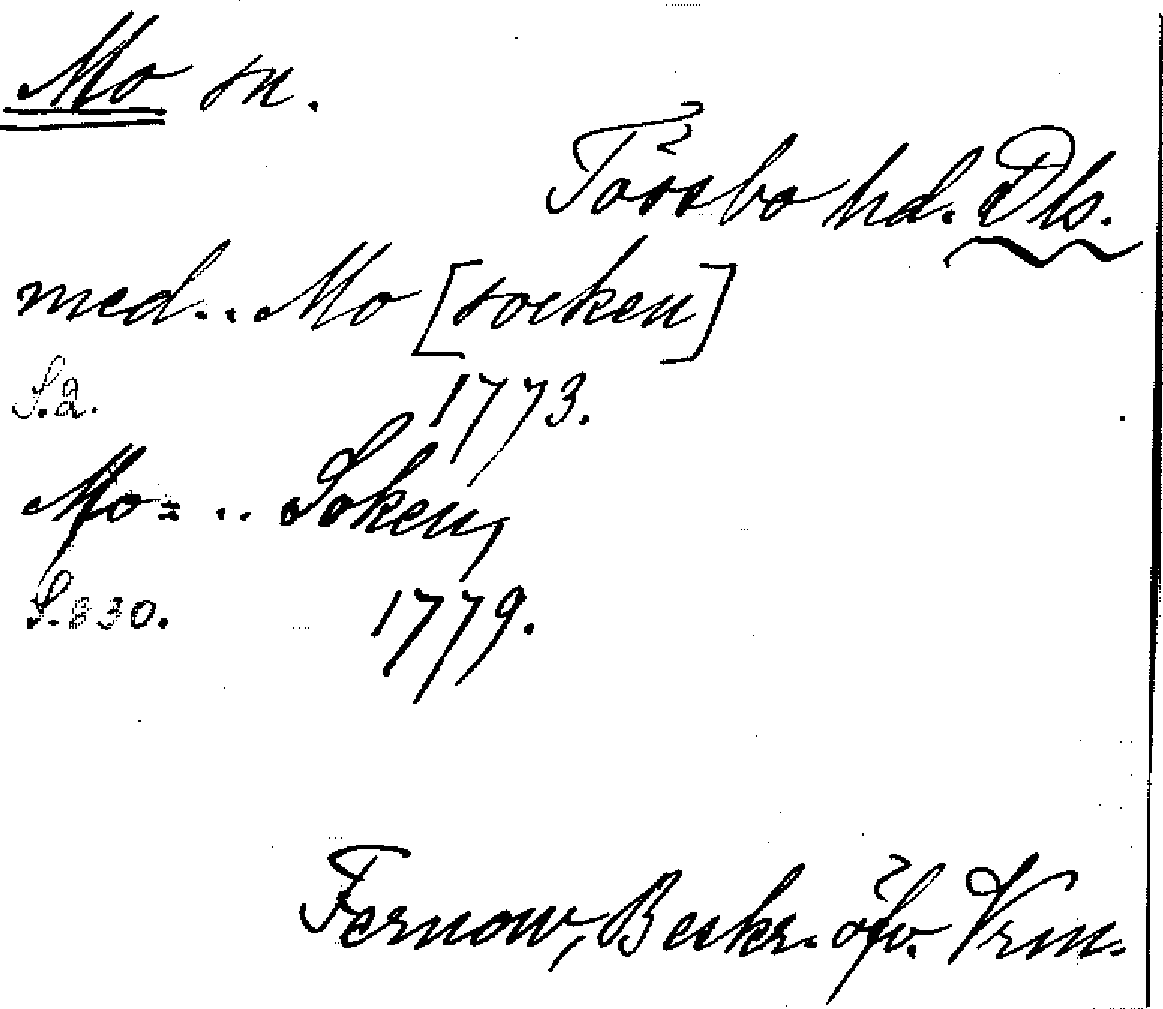 Mo sn.
Tössbo hd. Dls.
med.. Mo [socken]
S.2. 1773.
Mo= .. Soken,
S.330. 1779.
Fernow, Beskr. öfv. Vrm.